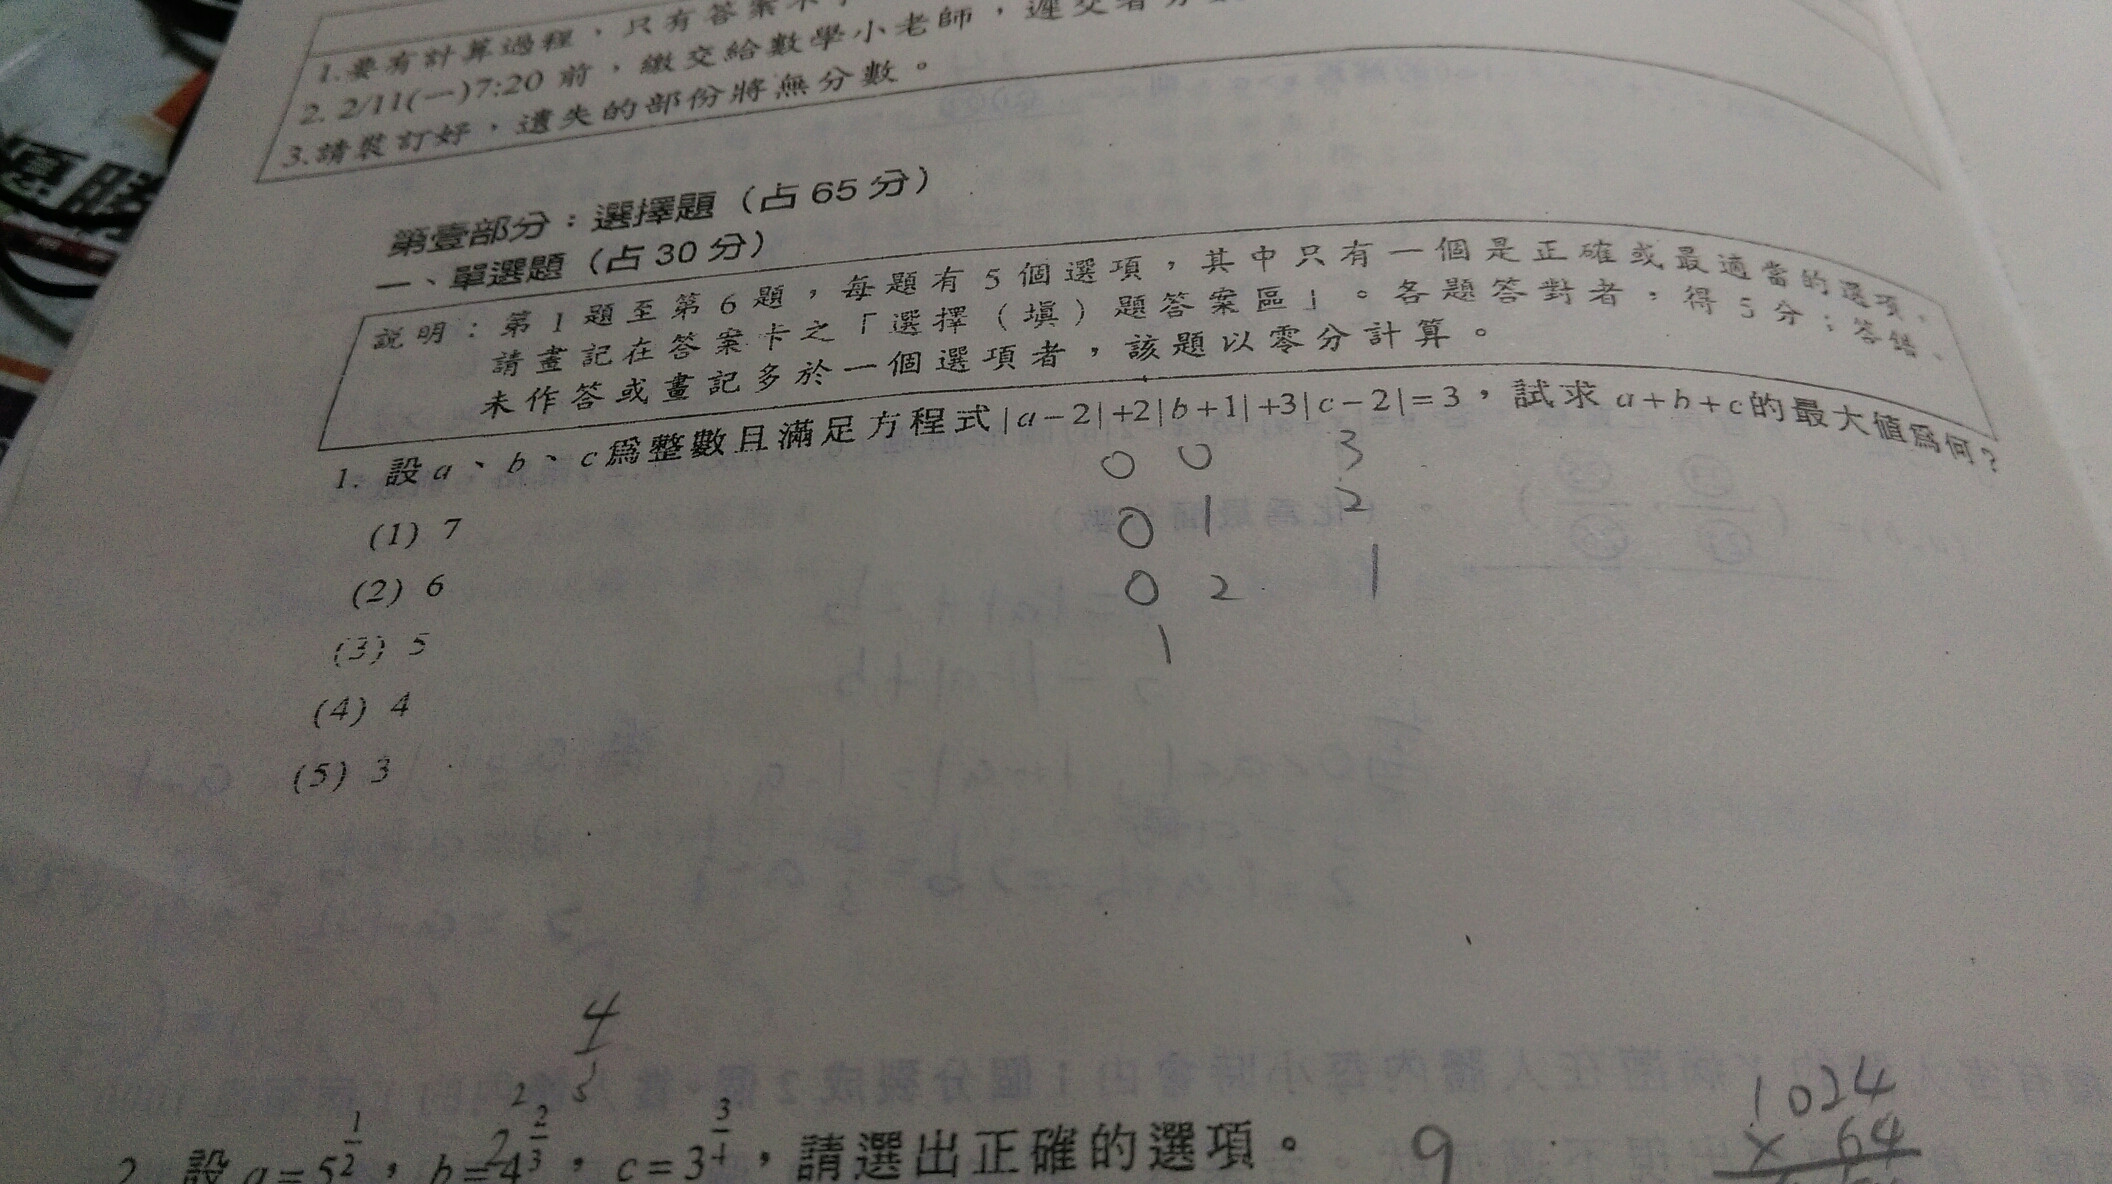 1.要有計算過程，只有答案不
2. 2/11(一)7:20 前，繳交給數學小老師，遲交者
3.請裝訂好，遺失的部份將無分數。
第壹部分：選擇題（占 65 分）
一、單選題（占 30 分）
說明：第 1 題至第 6 題，每題有 5 個選項，其中只有一個是正確或最適當的選項，
請畫記在答案卡之「選擇（填）題答案區」。各題答對者，得 5 分；答錯、
未作答或畫記多於一個選項者，該題以零分計算。
1. 設 a、b、c 為整數且滿足方程式 |a-2|+2|b+1|+3|c-2|=3，試求 a+b+c 的最大值為何？
0 0 3
(1) 7
0 1 2
(2) 6
0 2 1
(3) 5
1
(4) 4
(5) 3
4
5
2
1024
× 64
2. 設 a=5^{1/2}，b=4^{2/3}，c=3^{3/4}，請選出正確的選項。
9